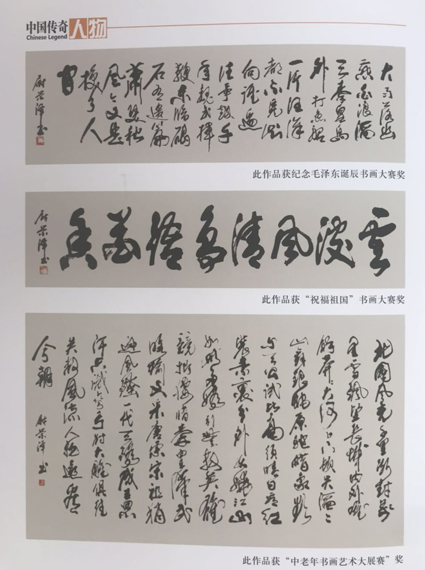 中国传奇 人物
Chinese Legend
大雨落幽
燕白浪滔
天秦皇岛
外打鱼船
一片汪洋
都不见知
向谁边
往事越千
年魏武挥
鞭东临碣
石有遗篇
萧瑟秋
风今又是
换了人
间
此作品获纪念毛泽东诞辰书画大赛奖
云淡风清
此作品获“祝福祖国”书画大赛奖
北国风光千里冰封万
里雪飘望长城内外惟
馀莽莽大河上下顿失滔滔
山舞银蛇原驰蜡象欲
与天公试比高须晴日看红
装素裹分外妖娆江山
如此多娇引无数英雄
竞折腰惜秦皇汉武
略输文采唐宗宋祖稍
逊风骚一代天骄成吉思
汗只识弯弓射大雕俱往
矣数风流人物还看
今朝
此作品获“中老年书画艺术大展赛”奖